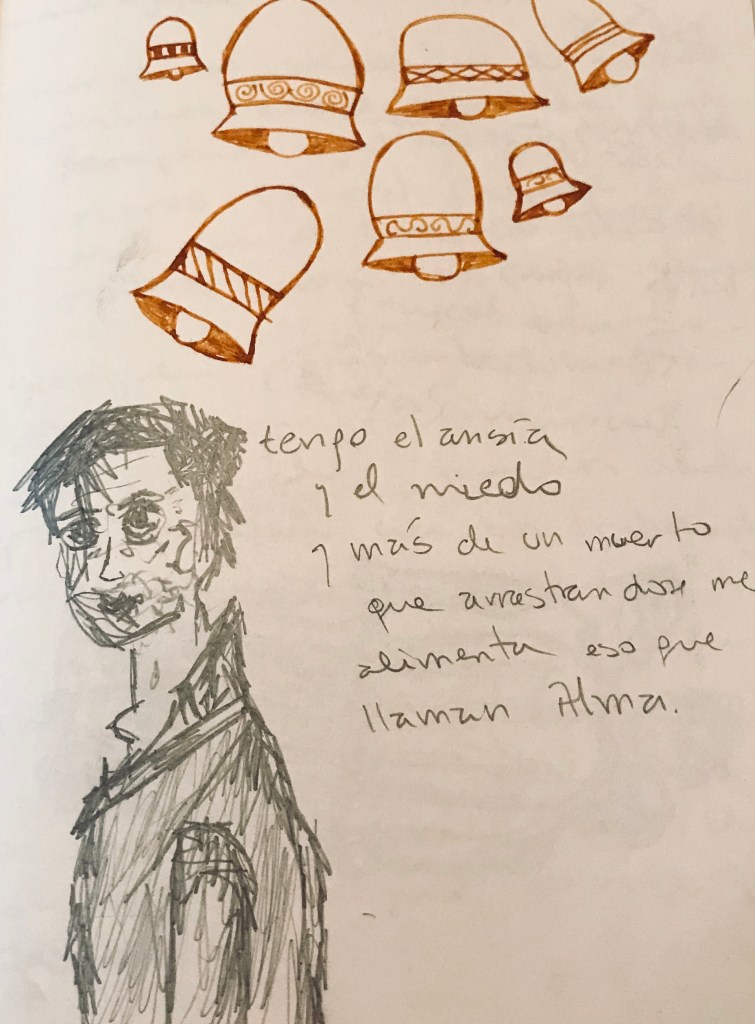 tengo el ansia
y el miedo
y más de un muerto
que arrastrandose me
alimenta eso que
llaman Alma.